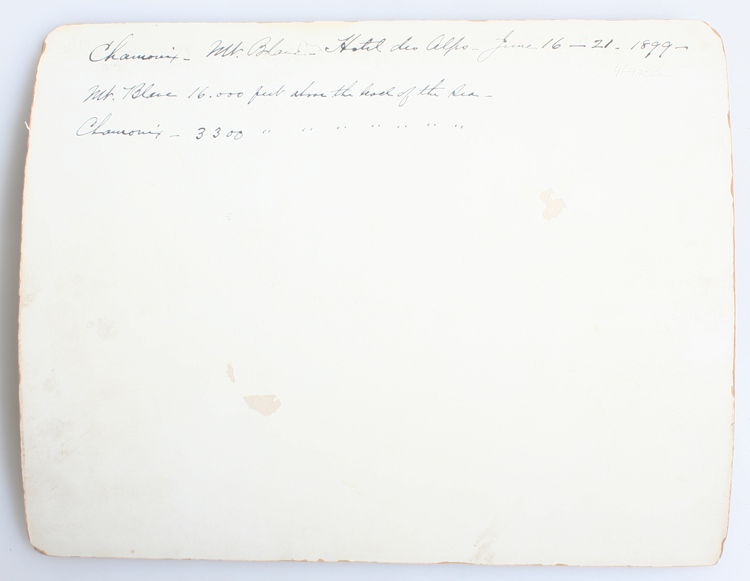 Chamonix - Mt. Blanc - Hotel des Alps - June 16 - 21 - 1899 -
Mt. Blanc 16.000 feet above the level of the Sea -
Chamonix - 3300 " " " " " " "